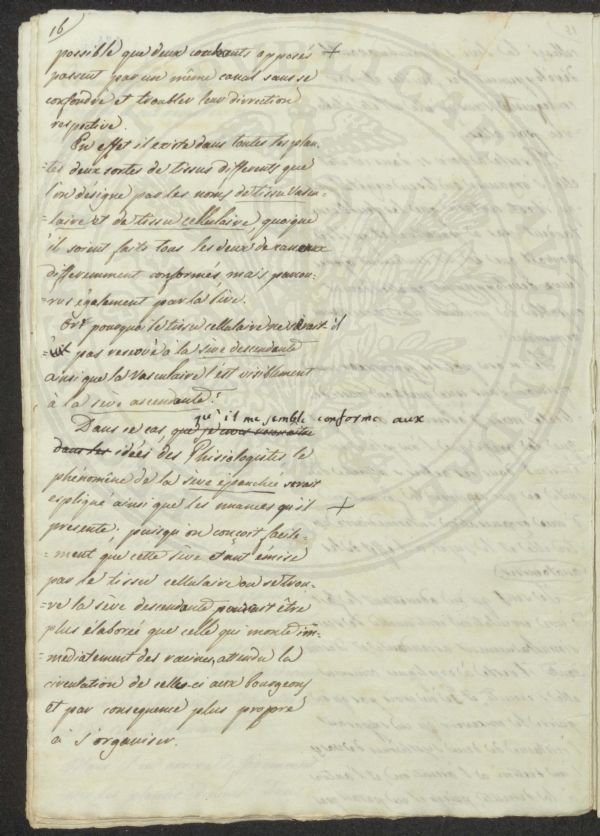 16
possible que deux courants opposés +
passent par un même canal sans se
confondre et troubler leur direction
respective.
En effet il existe dans toutes les plan-
=tes deux sortes de tissus differents que
l'on désigne par les noms de tissu vascu-
=laire et de tissu cellulaire, quoique
il soient faits tous les deux de vaisseaux
differemment conformés mais parcou-
=rus également par la sève.
Or pourquoi le tissu cellulaire ne serait il
pas reservé à la sève descendante
ainsi que la vasculaire l'est visiblement
à la sève ascendante?
qu'il me semble conforme aux
Dans ce cas que je crois connaitre
dans les idées des Phisiologistes le
phénomène de la sève épanchée serait
expliqué ainsi que les nuances qu'il +
presente; puisqu'on conçoit facile-
=ment que cette sève étant émise
par le tissu cellulaire ou se trou-
=ve la sève descendante pourait être
plus élaborée que celle qui monte im-
=mediatement des racines, attendu la
circulation de celles-ci aux bourgeons
et par consequence plus propre
à s'organiser.